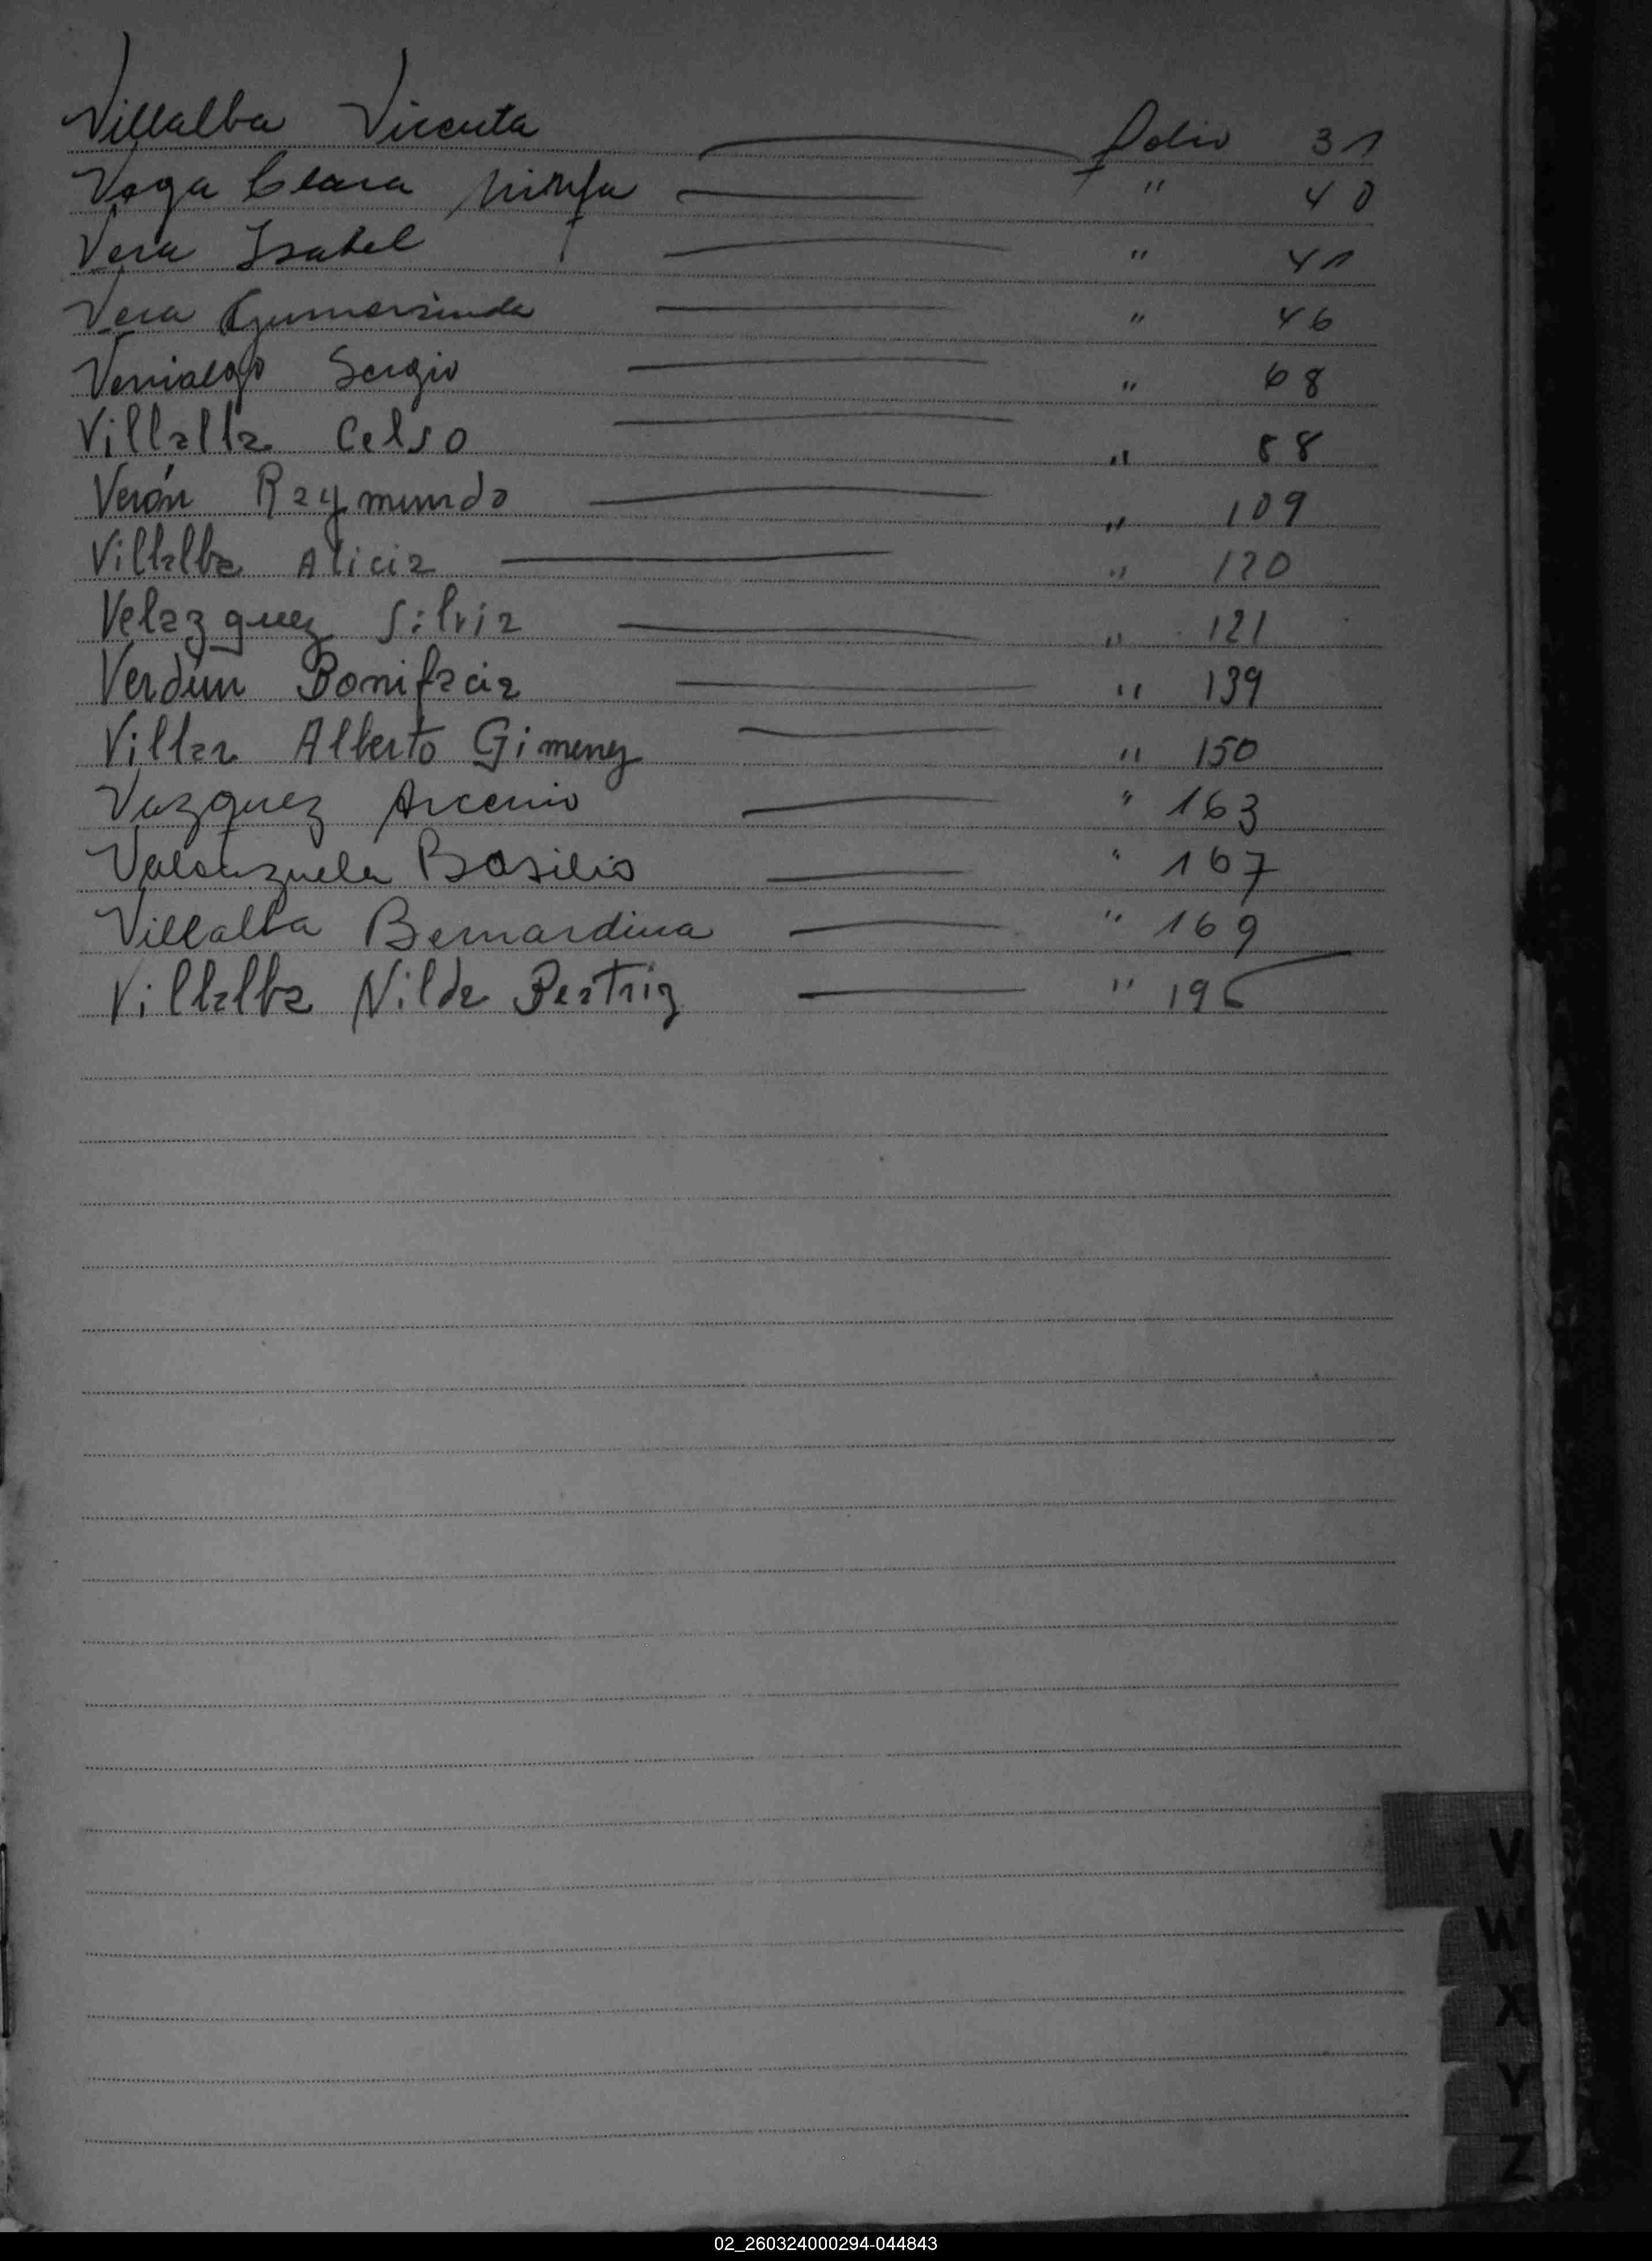 Villalba Vicenta folio 31
Vega Clara Ninfa " 40
Vera Isabel " 41
Vera Gumersinda " 46
Venialgo Sergio " 68
Villalba Celso " 88
Verón Raymundo " 109
Villalba Alicia " 120
Velazquez Silvia " 121
Verdún Bonifacia " 139
Villar Alberto Gimenez " 150
Vazquez Arcenio " 163
Valenzuela Basilio " 167
Villalba Bernardina " 169
Villalba Nilda Beatriz " 195
V
W
X
Y
Z
02_260324000294-044843